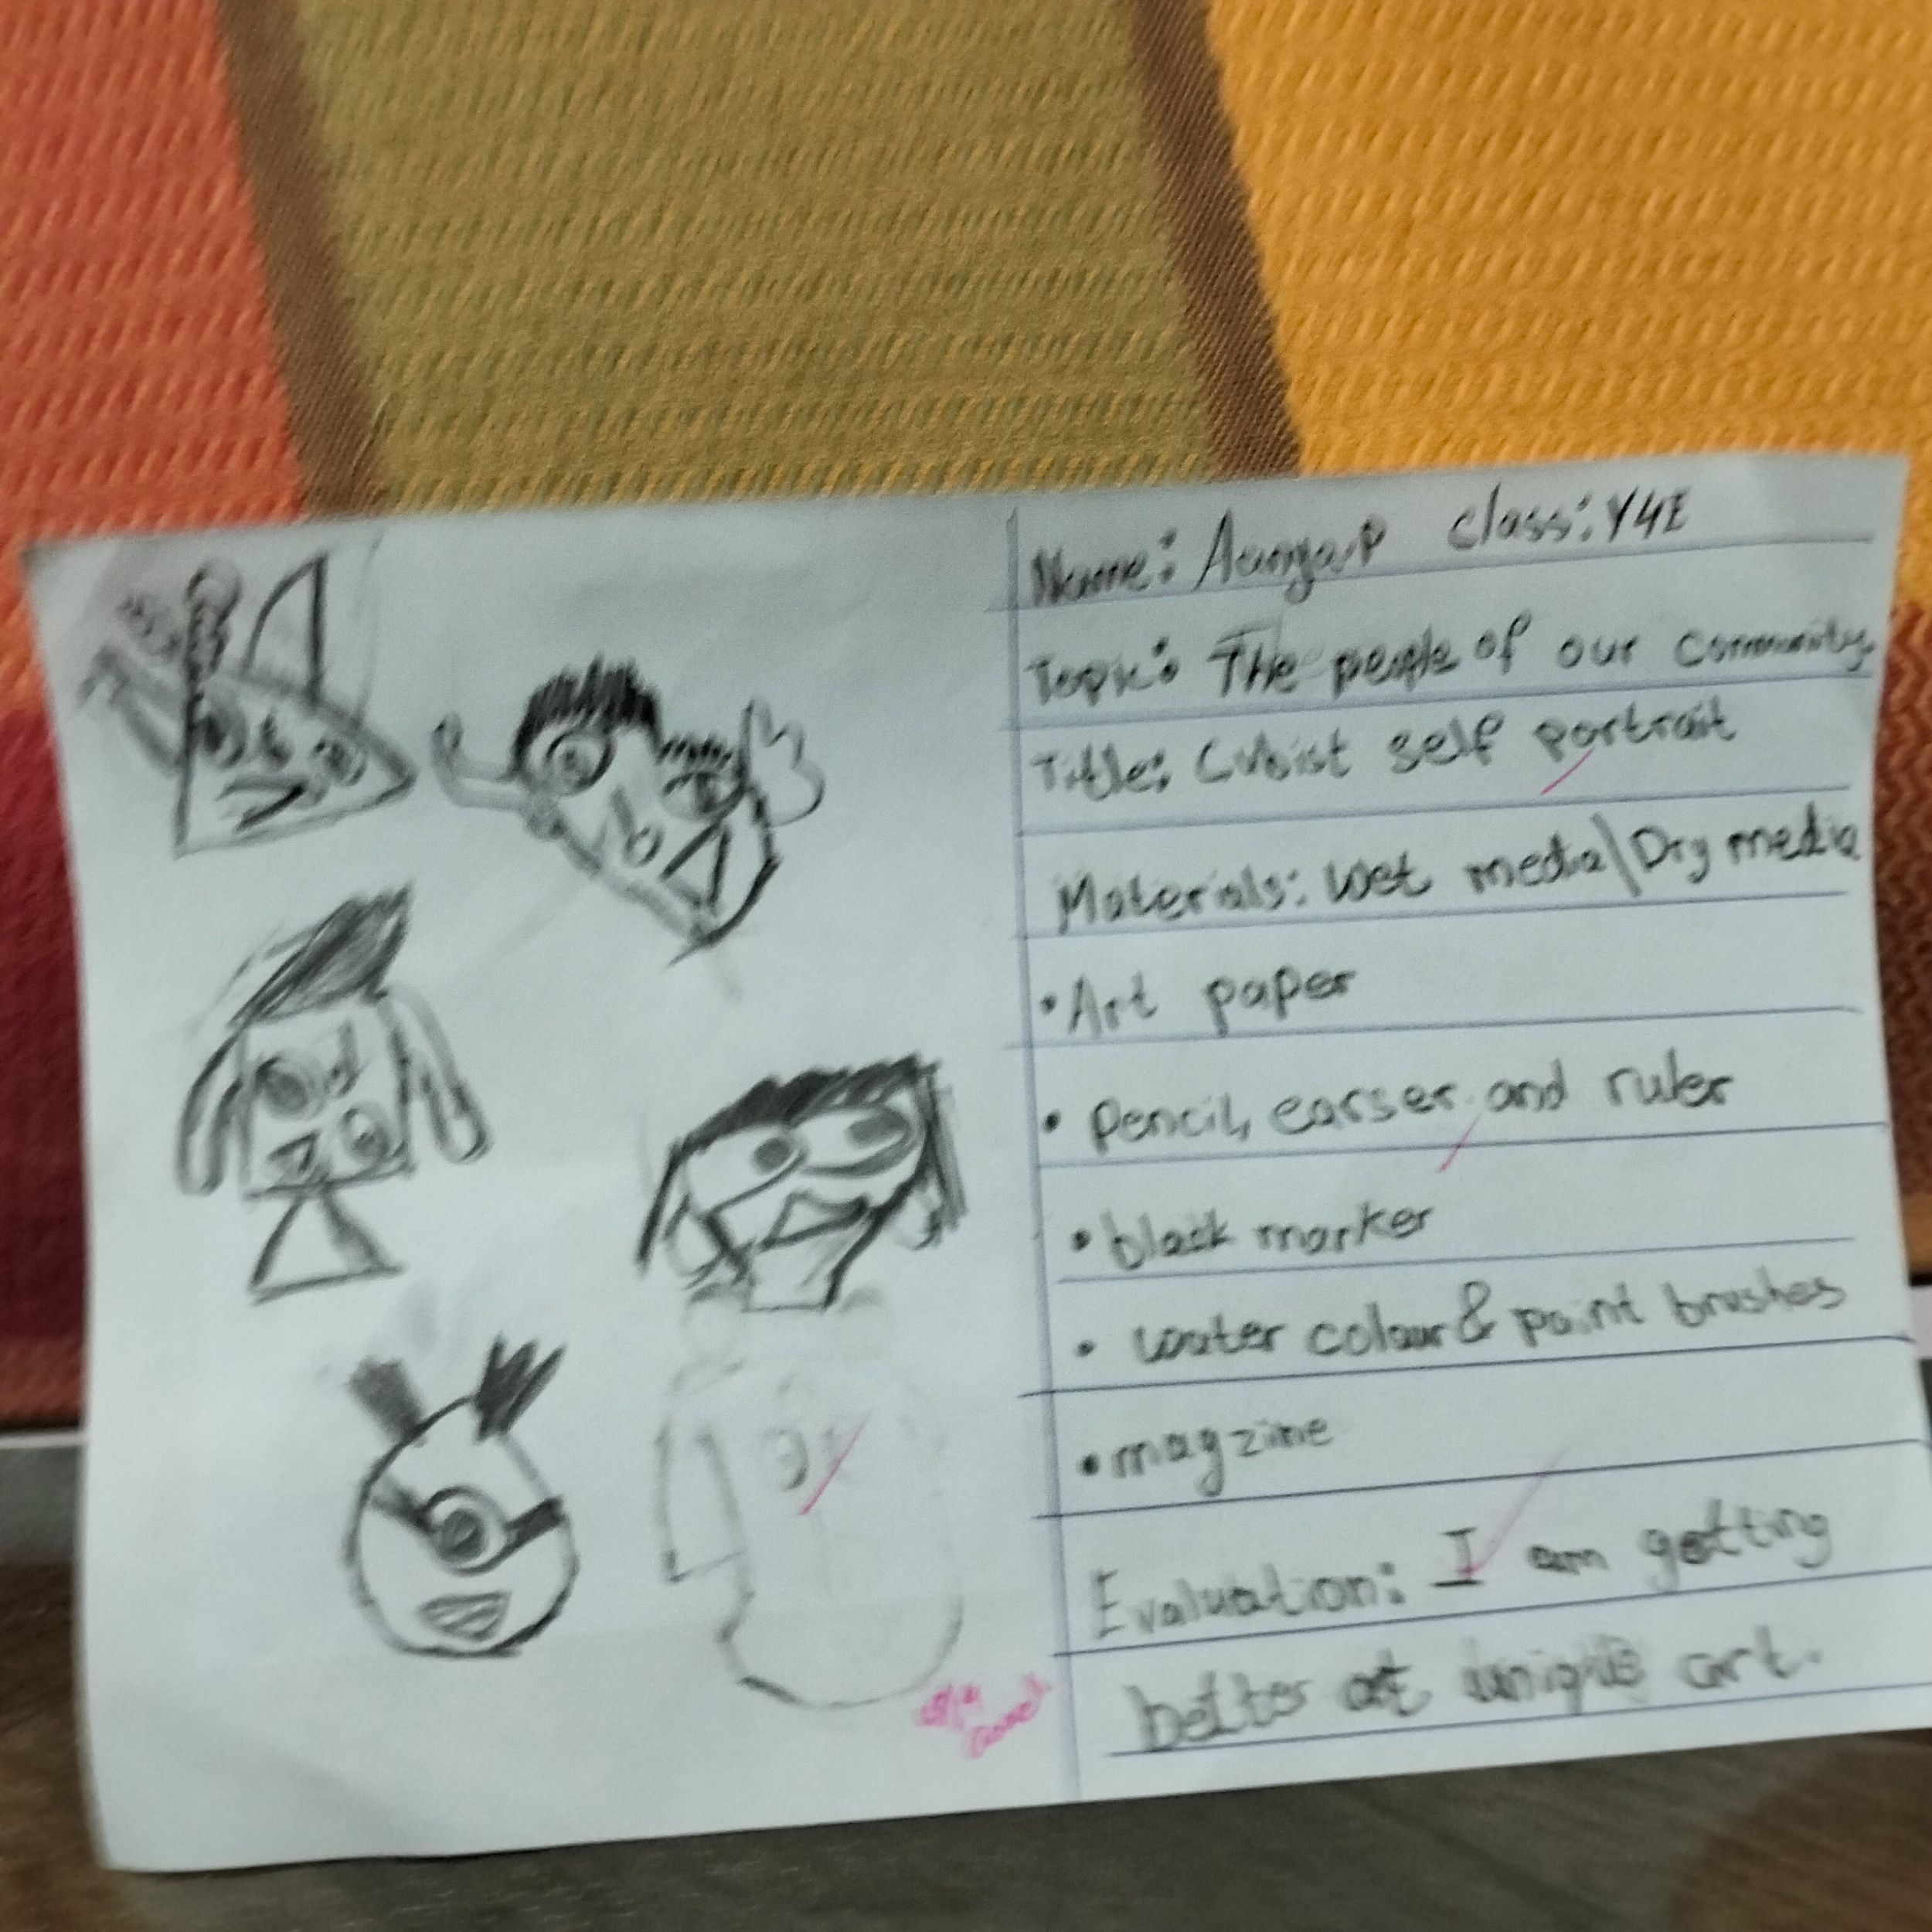 Name: Class: Y4E
Topic: The people of our community
Title: Cubist self portrait
Materials: wet media\Dry media
• Art paper
• pencil, earser and ruler
• black marker
• water colour & paint brushes
• magzine
Evaluation: I am getting
better at unique art.